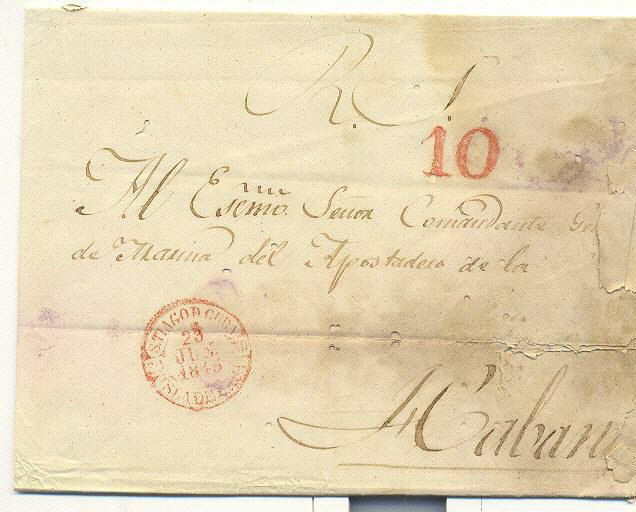 R. S.
10
Al Esemo. Señor Comandante
de Marina del Apostadero de la
STIAGO D CUBA
23
JUN
1843
ISLA DE
Haban